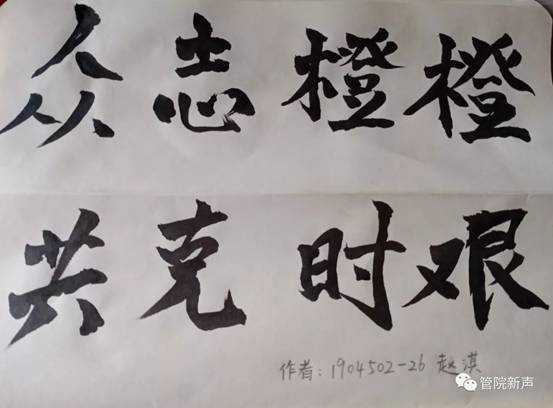 众志橙橙
共克时艰
作者：1904502-26 赵淇
管院新声